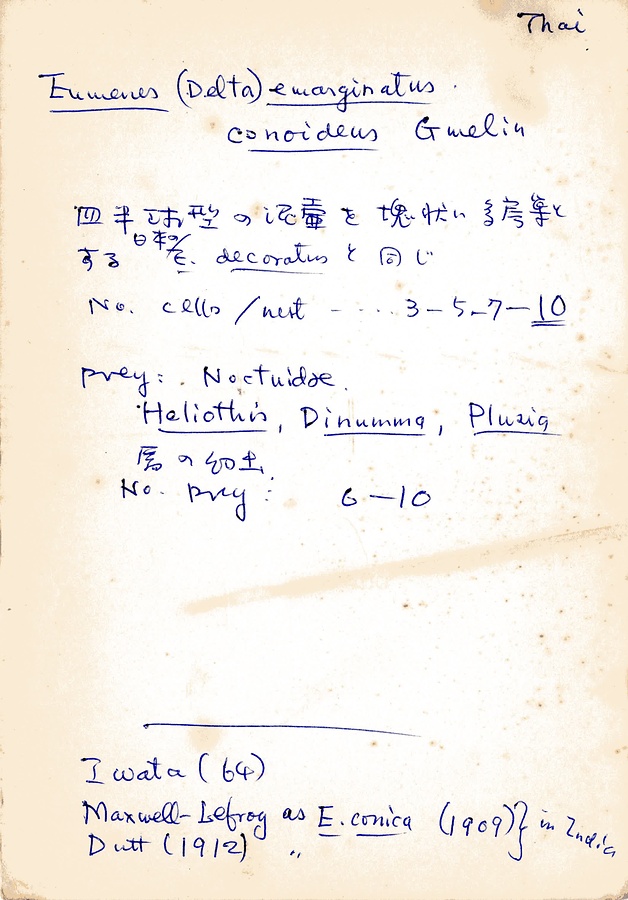 Thai
Eumenes (Delta) emarginatus.
conoideus Gmelin
半球型の泥壷を塊状に多房巣と
する 日本の E. decoratus と同じ
No. cells / nest ‐ ‐ ‐ ‐ 3 – 5 – 7 – 10
prey: . Noctuidae.
Heliothis, Dinumma, Plusia
属の幼虫.
No. prey: 6 – 10
Iwata (64)
Maxwell-Lefroy as E. conica (1909) } in India
Dutt (1912) 〃